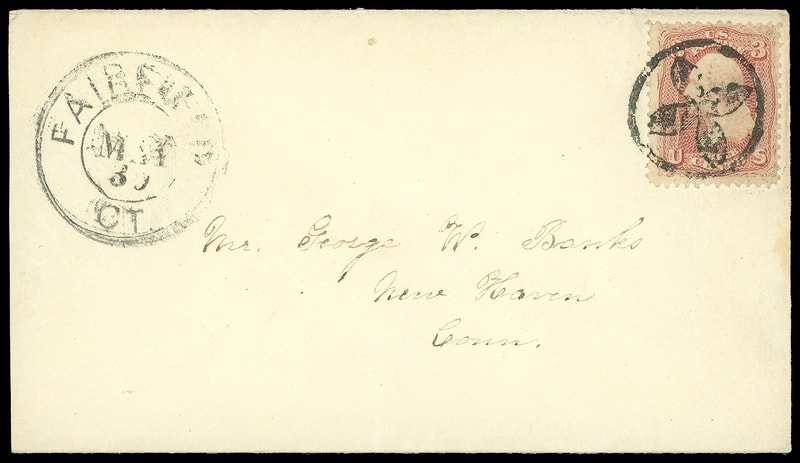 FAIRFIELD
MAY
30
CT.
U.S.
3
U S
Mr. George W. Banks
New Haven
Conn.